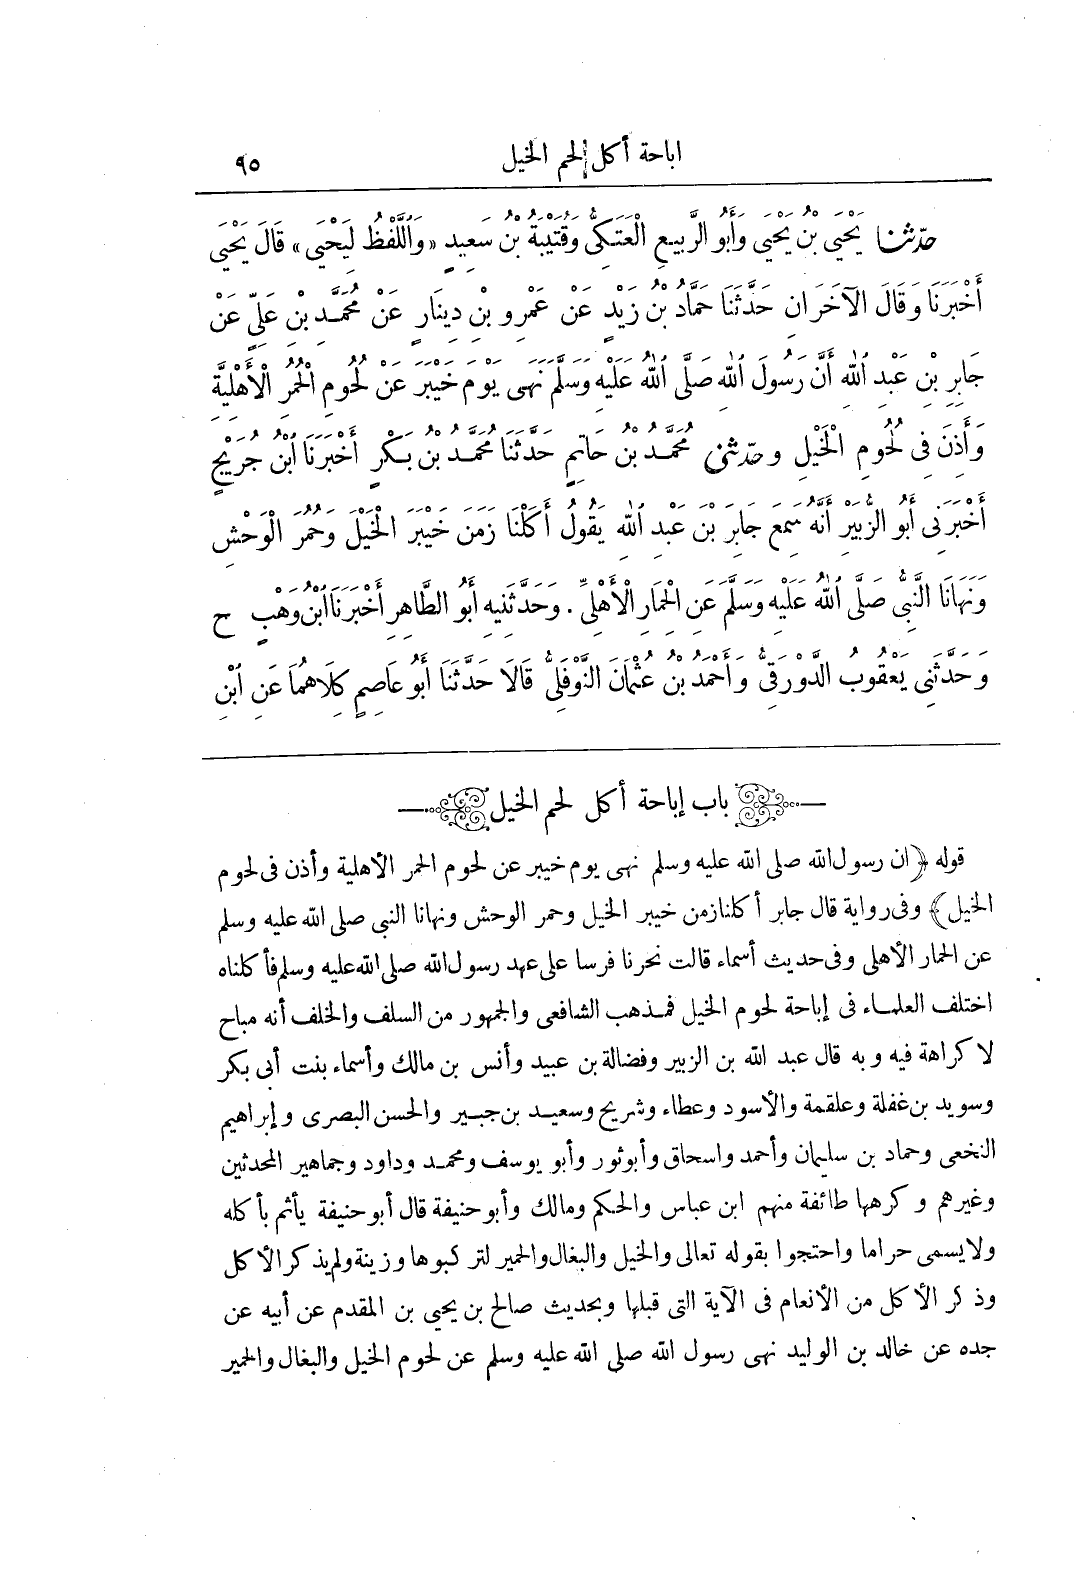 اباحة أكل لحم الخيل
٩٥
حَدَّثَنَا يَحْيَى بْنُ يَحْيَى وَأَبُو الرَّبِيعِ الْعَتَكِيُّ وَقُتَيْبَةُ بْنُ سَعِيدٍ «وَاللَّفْظُ لِيَحْيَى» قَالَ يَحْيَى
أَخْبَرَنَا وَقَالَ الْآخَرَانِ حَدَّثَنَا حَمَّادُ بْنُ زَيْدٍ عَنْ عَمْرِو بْنِ دِينَارٍ عَنْ مُحَمَّدِ بْنِ عَلِيٍّ عَنْ
جَابِرِ بْنِ عَبْدِ اللهِ أَنَّ رَسُولَ اللهِ صَلَّى اللهُ عَلَيْهِ وَسَلَّمَ نَهَى يَوْمَ خَيْبَرَ عَنْ لُحُومِ الْحُمُرِ الْأَهْلِيَّةِ
وَأَذِنَ فِى لُحُومِ الْخَيْلِ وحَدَّثَنِى مُحَمَّدُ بْنُ حَاتِمٍ حَدَّثَنَا مُحَمَّدُ بْنُ بَكْرٍ أَخْبَرَنَا ابْنُ جُرَيْجٍ
أَخْبَرَنِى أَبُو الزُّبَيْرِ أَنَّهُ سَمِعَ جَابِرَ بْنَ عَبْدِ اللهِ يَقُولُ أَكَلْنَا زَمَنَ خَيْبَرَ الْخَيْلَ وَحُمُرَ الْوَحْشِ
وَنَهَانَا النَّبِىُّ صَلَّى اللهُ عَلَيْهِ وَسَلَّمَ عَنِ الْحِمَارِ الْأَهْلِىِّ . وَحَدَّثَنِيهِ أَبُو الطَّاهِرِ أَخْبَرَنَا ابْنُ وَهْبٍ ح
وَحَدَّثَنِى يَعْقُوبُ الدَّوْرَقِىُّ وَأَحْمَدُ بْنُ عُثْمَانَ النَّوْفَلِىُّ قَالَا حَدَّثَنَا أَبُو عَاصِمٍ كِلَاهُمَا عَنِ ابْنِ
باب إباحة أكل لحم الخيل
قوله ﴿ان رسول الله صلى الله عليه وسلم نهى يوم خيبر عن لحوم الحمر الأهلية وأذن فى لحوم
الخيل﴾ وفى رواية قال جابر أكلنا زمن خيبر الخيل وحمر الوحش ونهانا النبى صلى الله عليه وسلم
عن الحمار الأهلى وفى حديث أسماء قالت نحرنا فرسا على عهد رسول الله صلى الله عليه وسلم فأكلناه
اختلف العلماء فى إباحة لحوم الخيل فمذهب الشافعى والجمهور من السلف والخلف أنه مباح
لا كراهة فيه وبه قال عبد الله بن الزبير وفضالة بن عبيد وأنس بن مالك وأسماء بنت أبى بكر
وسويد بن غفلة وعلقمة والأسود وعطاء وشريح وسعيد بن جبير والحسن البصرى وإبراهيم
النخعى وحماد بن سليمان وأحمد واسحاق وأبو ثور وأبو يوسف ومحمد وداود وجماهير المحدثين
وغيرهم وكرهها طائفة منهم ابن عباس والحكم ومالك وأبو حنيفة قال أبو حنيفة يأثم بأكله
ولا يسمى حراما واحتجوا بقوله تعالى والخيل والبغال والحمير لتركبوها وزينة ولم يذكر الأكل
وذكر الأكل من الأنعام فى الآية التى قبلها وبحديث صالح بن يحيى بن المقدم عن أبيه عن
جده عن خالد بن الوليد نهى رسول الله صلى الله عليه وسلم عن لحوم الخيل والبغال والحمير